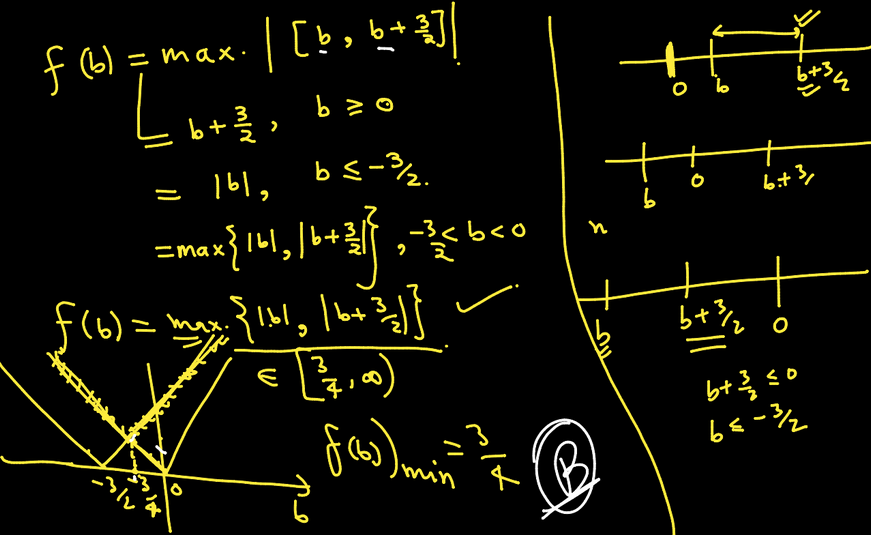 f(b) = max. |[b, b+3/2]|.
= b+3/2, b ≥ 0
= |b|, b ≤ -3/2.
= max{|b|, |b+3/2|}, -3/2 < b < 0
f(b) = max. {|b|, |b+3/2|} ✓
∈ [3/4, ∞)
f(b))min = 3/4
B
-3/2 -3/4 0 b
0 b b+3/2 ✓
b 0 b+3/
n
b b+3/2 0
b+3/2 ≤ 0
b ≤ -3/2